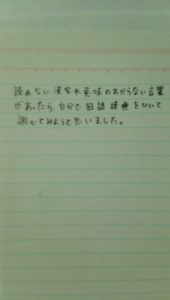 読めない漢字や意味のわからない言葉
があったら、自分で国語辞典をひいて
調べてみようと思いました。